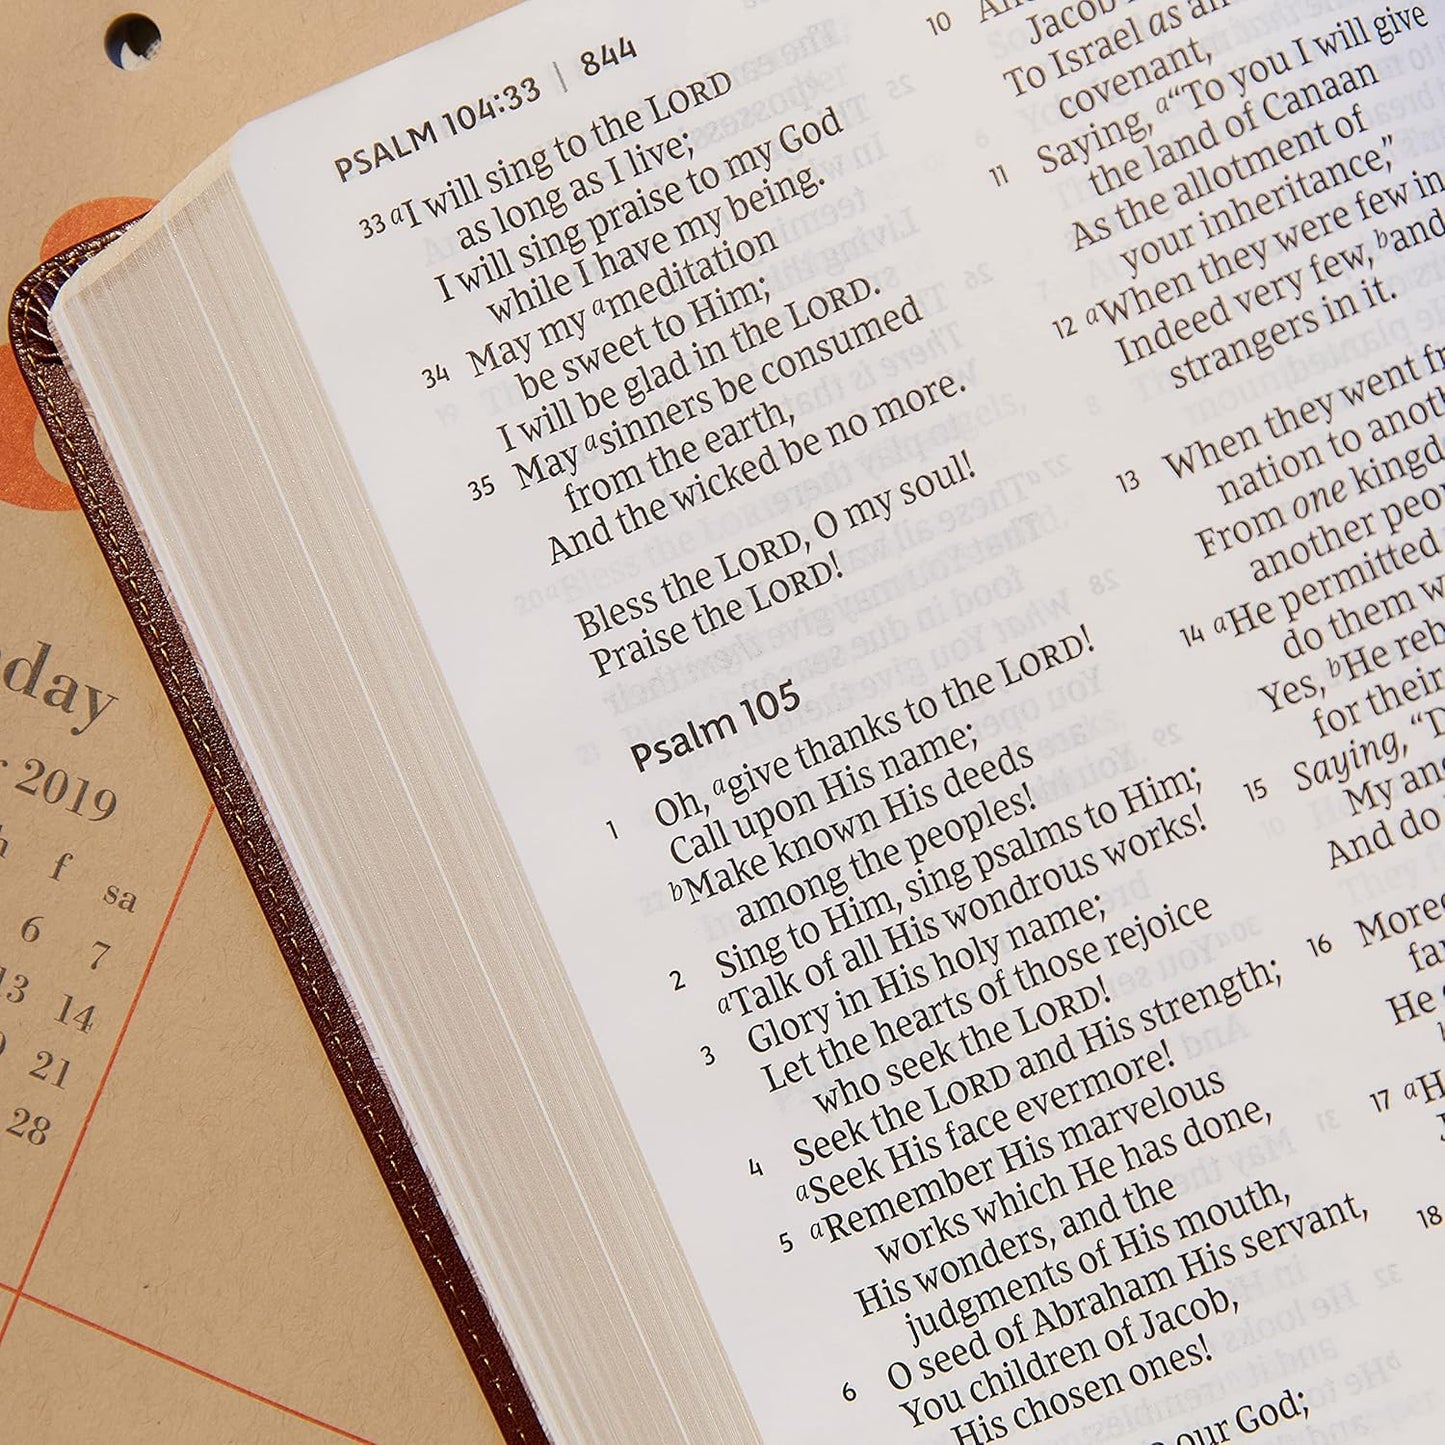 PSALM 104:33 | 844
33 aI will sing to the LORD
as long as I live;
I will sing praise to my God
while I have my being.
34 May my ameditation
be sweet to Him;
I will be glad in the LORD.
35 May asinners be consumed
from the earth,
And the wicked be no more.
Bless the LORD, O my soul!
Praise the LORD!
Psalm 105
1 Oh, agive thanks to the LORD!
Call upon His name;
bMake known His deeds
among the peoples!
2 Sing to Him, sing psalms to Him;
aTalk of all His wondrous works!
3 Glory in His holy name;
Let the hearts of those rejoice
who seek the LORD!
4 Seek the LORD and His strength;
aSeek His face evermore!
5 aRemember His marvelous
works which He has done,
His wonders, and the
judgments of His mouth,
6 O seed of Abraham His servant,
You children of Jacob,
His chosen ones!
our God;
10
Jacob
To Israel as an
covenant,
11 Saying, a“To you I will give
the land of Canaan
As the allotment of
your inheritance,”
12 aWhen they were few in
Indeed very few, band
strangers in it.
13 When they went
nation to
From one
another
14 aHe permitted
do them
Yes, bHe
for their
15 Saying,
My
And do
16
He
17
18
2019
f sa
6 7
13 14
21
28